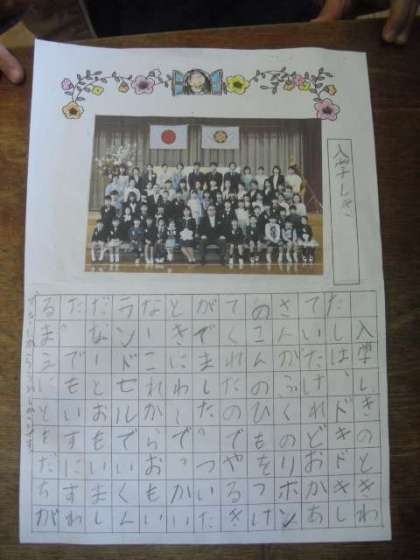 入学しき
入学しきのときわ
たしは、ドキドキし
ていたけれどおかあ
さんがふくのリボン
のこんのひもをつけ
てくれたのでやるき
がでました。ついた
ときに
なーこれからおもい
ランドセルでいくん
だなーとおもいまし
た。でもいすにすわ
るまえにともだちが